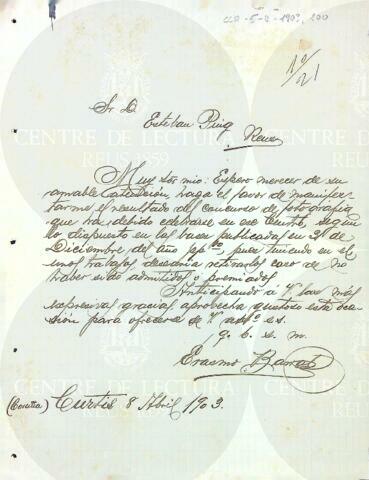 CLR-5-2-1903, 200
10/21
Sr. D.
Esteban Puig
Reus
Muy sor mio: Espero merecer de su
amable atención haga el favor de manifes-
tarme el resultado del concurso de fotografia
que ha debido celebrarse en ese Centro, segun
lo dispuesto en las bases publicadas en 21 de
Diciembre del año ppdo, pues teniendo en el
unos trabajos desearia retirarlos caso de no
haber sido admitidos o premiados.
Anticipando á V las más
expresivas gracias aprovecha gustoso esta oca-
sión para ofrecerse de V affmo s.s.
q. b. s. m.
Erasmo
(Coruña) Curtis 8 Abril 1903.
CENTRE DE LECTURA
REUS 1859
CENTRE DE LECTURA
REUS 1859